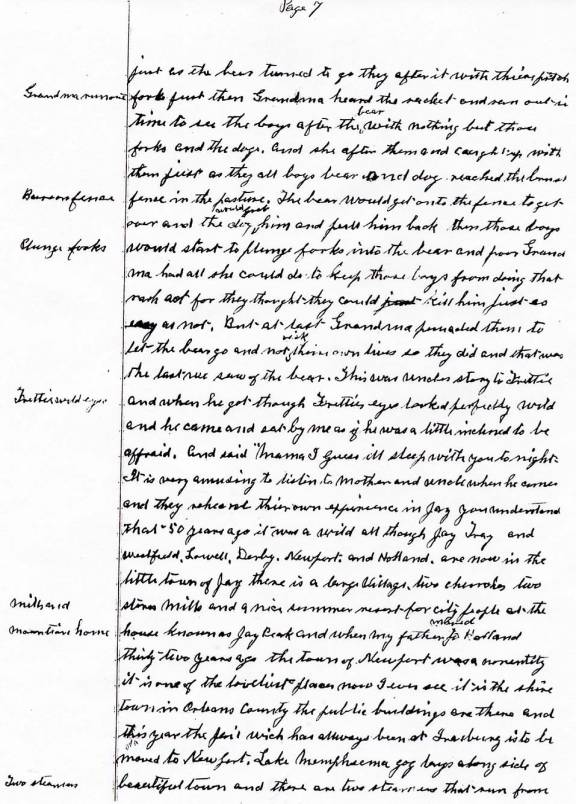 Page 7
just as the bear turned to go they after it with thier pitch
Grandma runs out
forks just then Grandma heard the racket and ran out in
time to see the boys after the bear with nothing but those
forks and the dogs. and she after them and caught up with
them just as they all boys bear and dog reached the brush
Bear on fence
fense in the pasture. The bear would get onto the fense to get
over and the dog would grab him and pull him back then those boys
Plunge forks
would start to plunge forks into the bear and poor Grand
ma had all she could do to keep those boys from doing that
rash act for they thought they could just kill him just as
easy as not. But at last Grandma persuaded them to
let the bear go and not risk thier own lives so they did and that was
the last we saw of the bear. This was uncles story to Frettie
Fretties wild eyes
and when he got though Fretties eyes looked perfectly wild
and he came and sat by me as if he was a little inclined to be
affraid. and said "Mama I guess ill sleep with you to night.
It is very amusing to listin to Mother and uncle when he comes
and they rehearse thier own expirence in Jay you understand
that 50 years ago it was a wild all though Jay Troy and
Westfield, Lowell, Derby, Newport, and Holland, are now in the
little town of Jay there is a large Village, two churches two
Mills and
stores Mills and a nice summer resort for city people at the
Mountain home
house known as Jay Peak and when my father moved to Holland
thirty two years ago the town of Newport was a nonentity
it is one of the loveliest places now I ever see it is the shire
town in Orleans County the public buildings are there and
this year the jail wich has allways been at Irasburg is to be
moved to Newport. Lake Memphremagog lays along side of
Two steamers
beautiful town and there are two steamers that run from